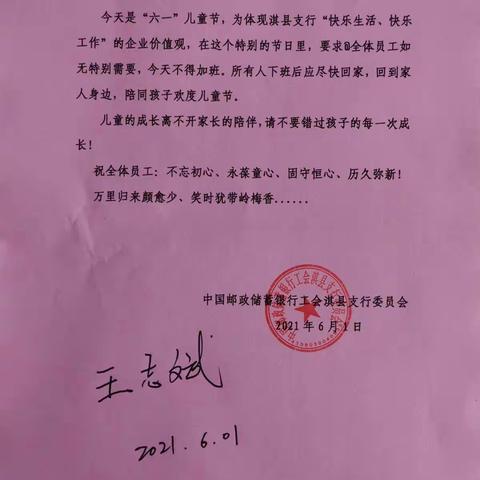 今天是“六一”儿童节，为体现淇县支行“快乐生活、快乐
工作”的企业价值观，在这个特别的节日里，要求@全体员工如
无特别需要，今天不得加班。所有人下班后应尽快回家，回到家
人身边，陪同孩子欢度儿童节。
儿童的成长离不开家长的陪伴，请不要错过孩子的每一次成
长！
祝全体员工：不忘初心、永葆童心、固守恒心、历久弥新！
万里归来颜愈少、笑时犹带岭梅香......
中国邮政储蓄银行工会淇县支行委员会
2021年6月1日
王志斌
2021.6.01